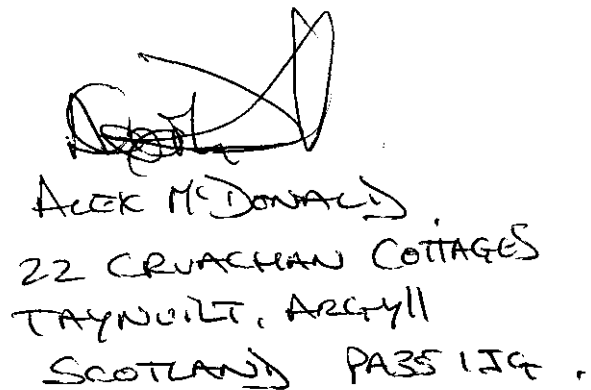 ALEK McDONALD
22 CRUACHAN COTTAGES
TAYNUILT, ARGYll
SCOTLAND PA35 1JG.